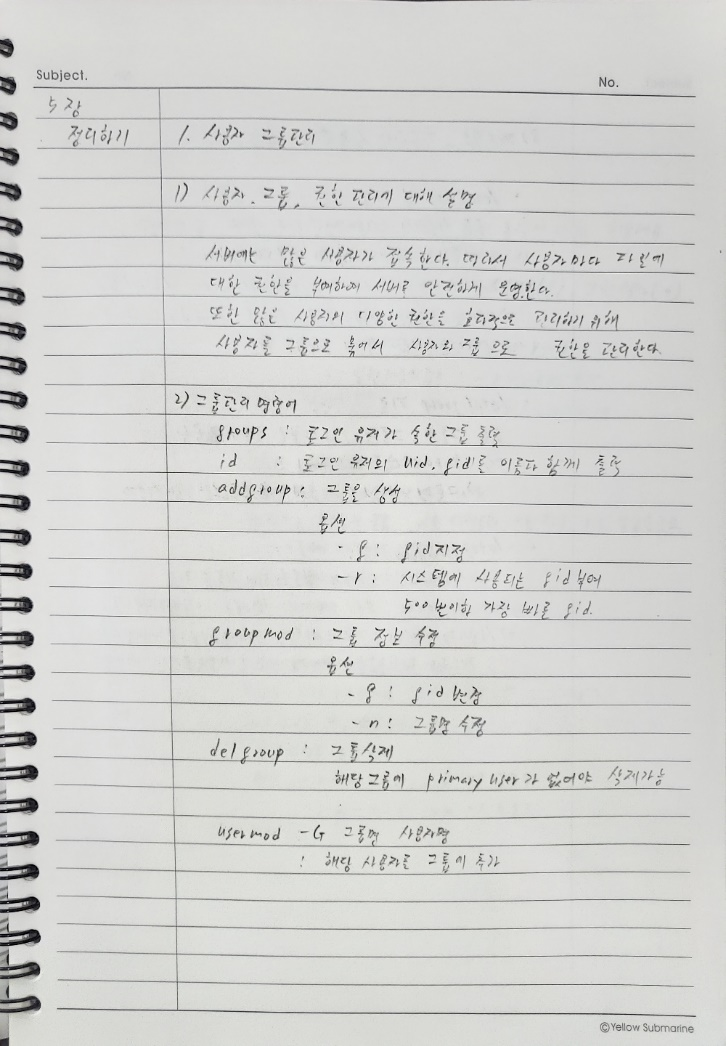 Subject.
No.
5장
정리하기
1. 사용자 그룹관리
1) 사용자, 그룹, 권한 관리에 대해 설명
서버에는 많은 사용자가 접속한다. 따라서 사용자마다 파일에
대한 권한을 부여하여 서버를 안전하게 운영한다.
또한 많은 사용자의 다양한 권한을 효과적으로 관리하기 위해
사용자를 그룹으로 묶어서 사용자와 그룹으로 권한을 관리한다.
2) 그룹관리 명령어
groups : 로그인 유저가 속한 그룹 출력
id : 로그인 유저의 uid, gid를 이름과 함께 출력
addgroup : 그룹을 생성
옵션
- g : gid지정
- r : 시스템에 사용되는 gid부여
500번이하 가장 빠른 gid.
groupmod : 그룹 정보 수정
옵션
- g : gid변경
- n : 그룹명 수정
delgroup : 그룹삭제
해당 그룹에 primary user가 없어야 삭제가능
usermod -G 그룹명 사용자명
: 해당 사용자를 그룹에 추가
©Yellow Submarine